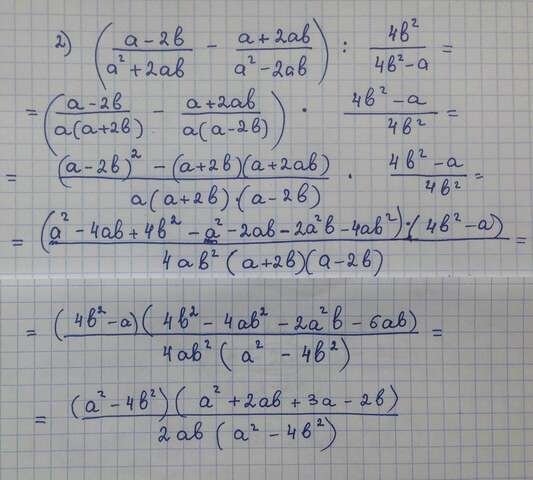 2) ( (a-2b)/(a²+2ab) - (a+2ab)/(a²-2ab) ) : 4b²/(4b²-a) =
= ( (a-2b)/(a(a+2b)) - (a+2ab)/(a(a-2b)) ) · (4b²-a)/(4b²) =
= ((a-2b)² - (a+2b)(a+2ab))/(a(a+2b)·(a-2b)) · (4b²-a)/(4b²) =
= ((a²-4ab+4b²-a²-2ab-2a²b-4ab²)·(4b²-a))/(4ab²(a+2b)(a-2b)) =
= ((4b²-a)(4b²-4ab²-2a²b-6ab))/(4ab²(a²-4b²)) =
= ((a²-4b²)(a²+2ab+3a-2b))/(2ab(a²-4b²))